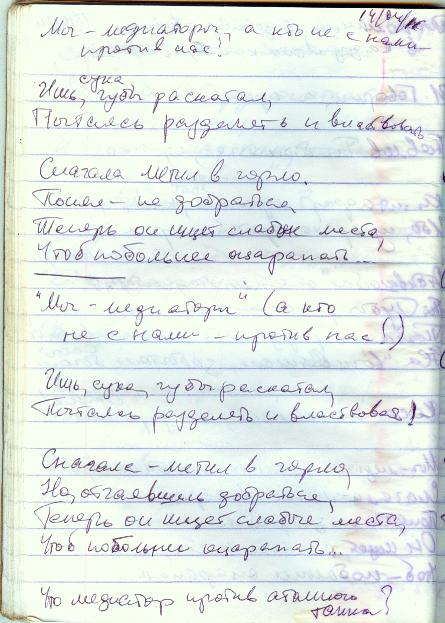 14/04/16
Мы - медиаторы, а кто не с нами -
против нас!
сука
Ишь, губы раскатал,
Пытаясь разделять и властвовать
Сначала метил в горло.
Понял - не добраться.
Теперь он ищет слабые места,
Чтоб побольнее оцарапать...
"Мы - медиаторы" (а кто
не с нами - против нас!)
Ишь, сука, губы раскатал,
Пытаясь разделять и властвовать!
Сначала - метил в горло,
Но, отчаявшись добраться,
Теперь он ищет слабые места,
Чтоб побольнее оцарапать...
Что медиатор против атомного
танка?